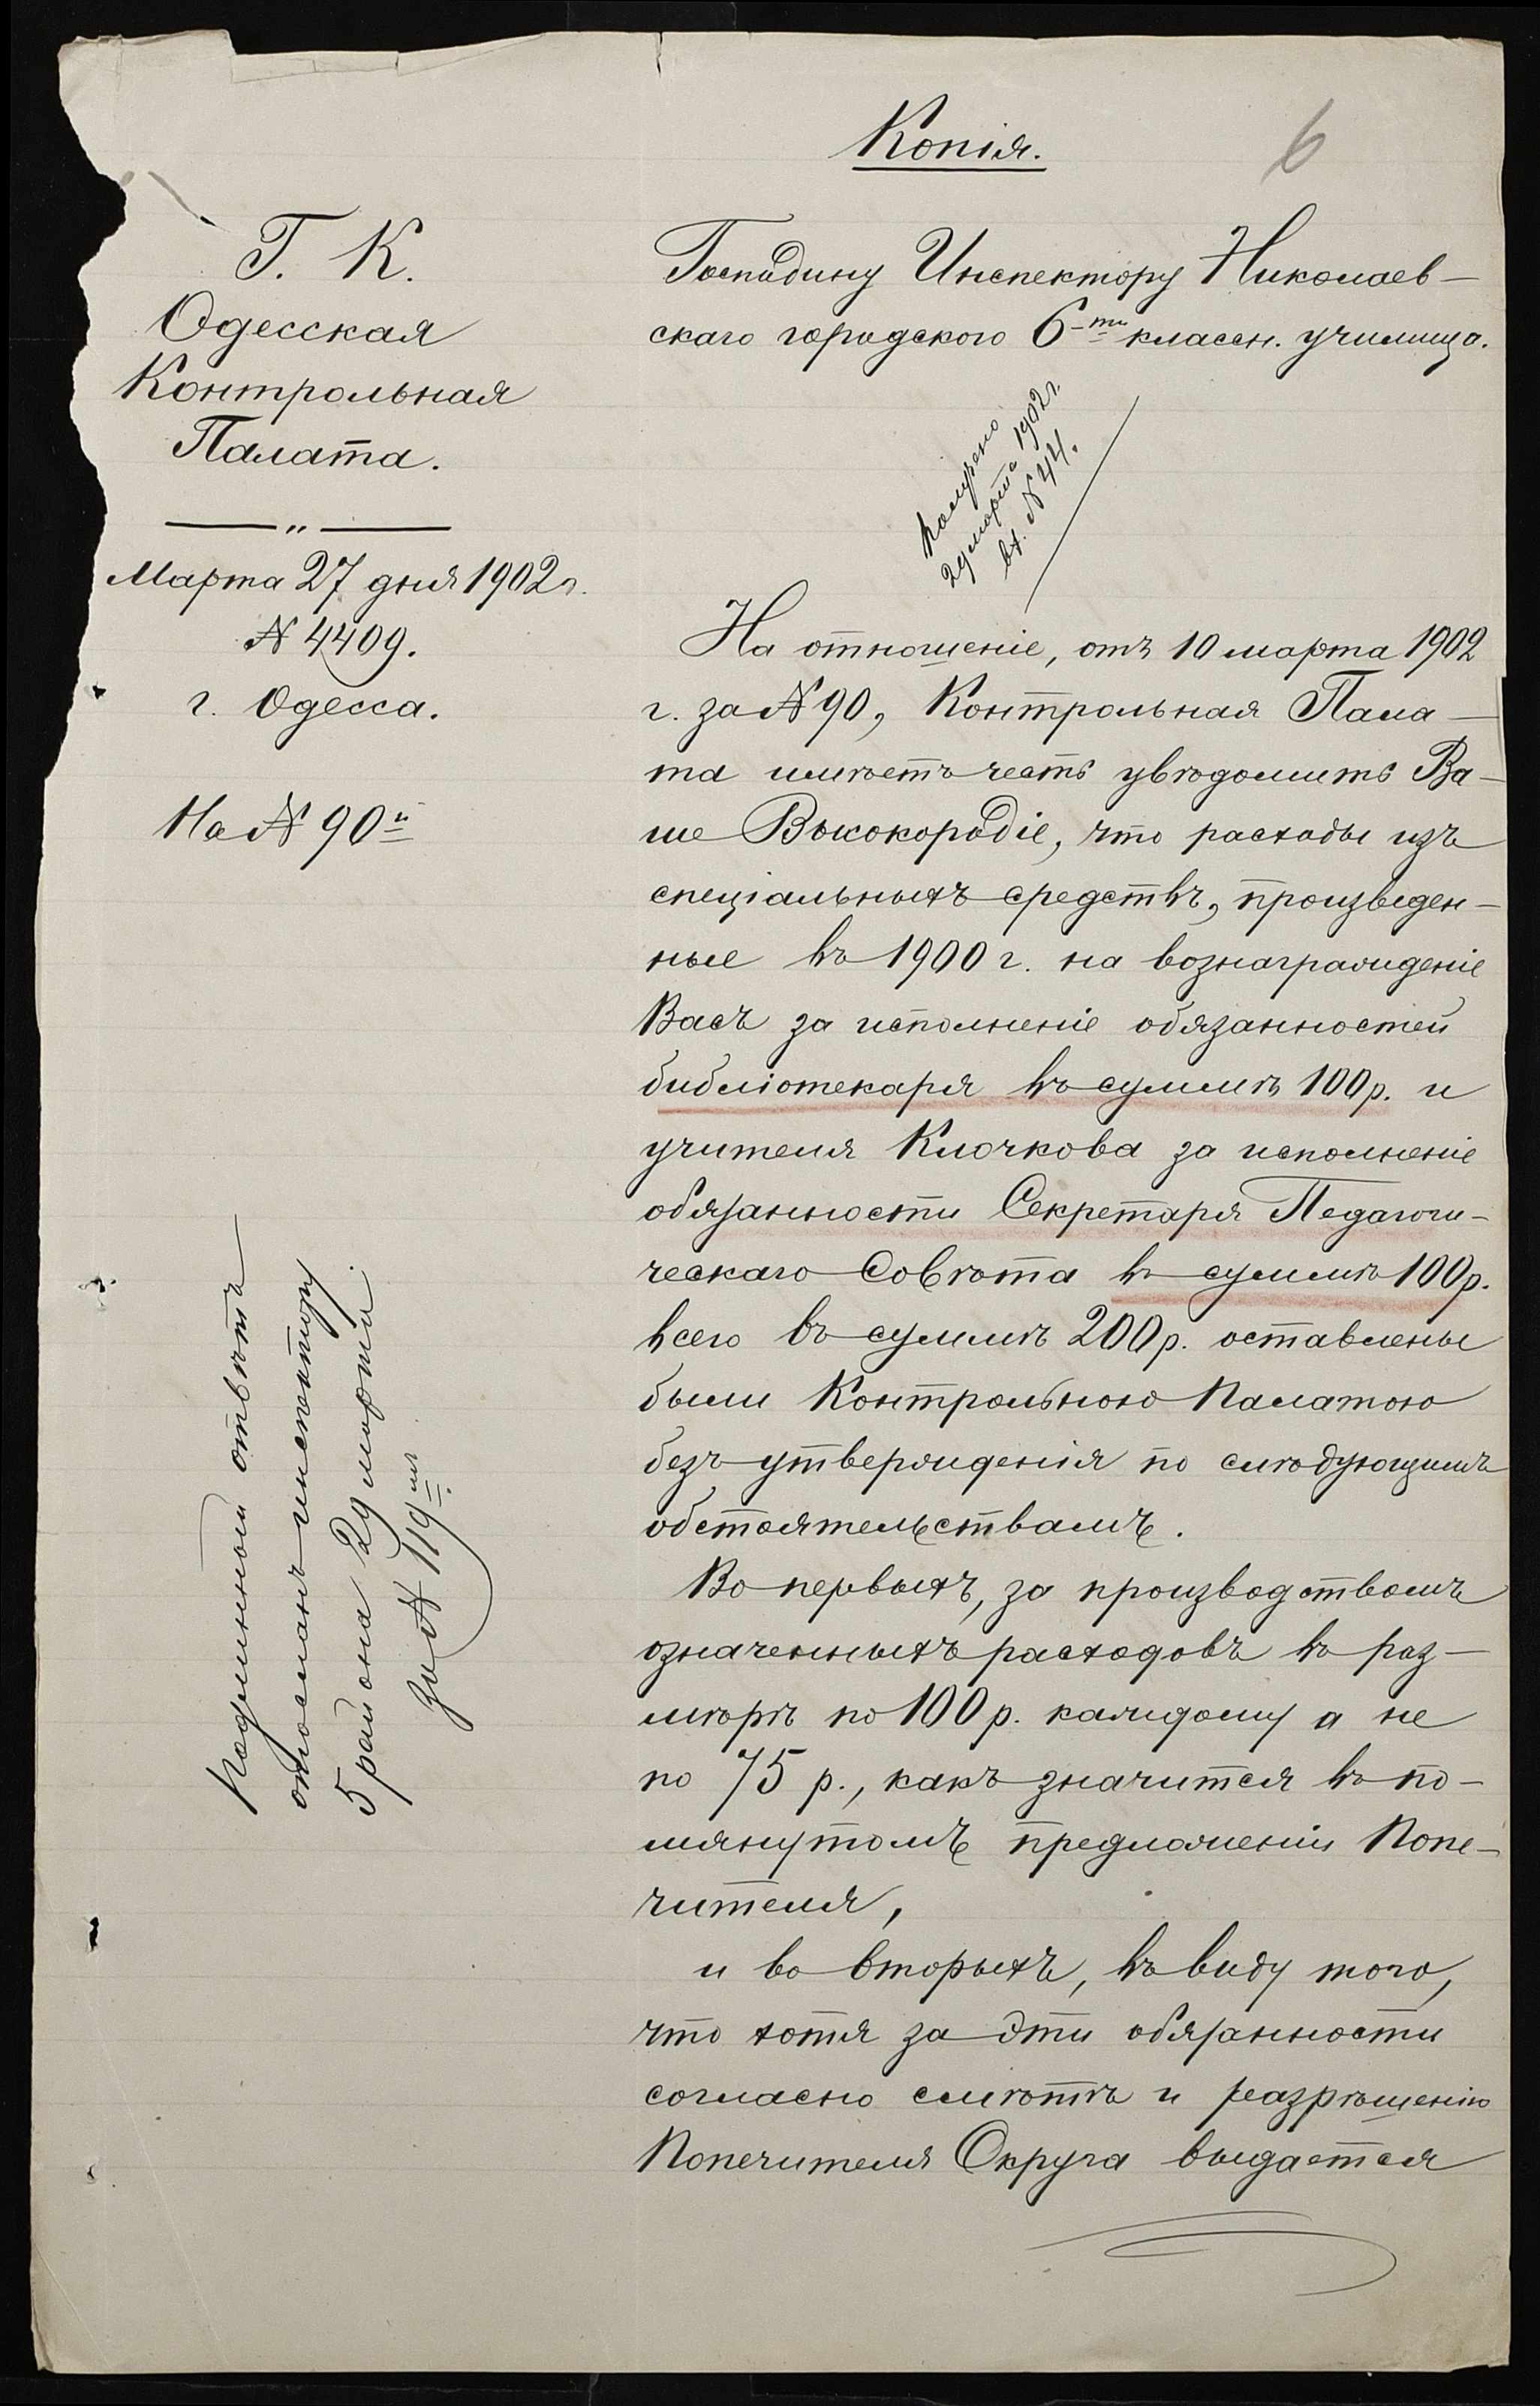 Копія.
6
Г. К.
Одесская
Контрольная
Палата.
Марта 27 дня 1902 г.
№ 4409.
г. Одесса.
На № 90й
Господину Инспектору Николаев-
скаго городского 6-ти классн. училища.
Получено
29 марта 1902 г.
вх. № 44.
На отношеніе, отъ 10 марта 1902
г. за № 90, Контрольная Пала-
та имѣетъ честь увѣдомить Ва-
ше Высокородіе, что расходы изъ
спеціальныхъ средствъ, произведен-
ные въ 1900 г. на вознагражденіе
Васъ за исполненіе обязанностей
библіотекаря въ суммѣ 100 р. и
учителя Клочкова за исполненіе
обязанности Секретаря Педагоги-
ческаго Совѣта въ суммѣ 100 р.
всего въ суммѣ 200 р. оставлены
были Контрольною Палатою
безъ утвержденія по слѣдующимъ
обстоятельствамъ.
Во первыхъ, за производствомъ
означенныхъ расходовъ въ раз-
мѣрѣ по 100 р. каждому а не
по 75 р., какъ значится въ по-
мянутомъ предложеніи Попе-
чителя,
и во вторыхъ, въ виду того,
что хотя за эти обязанности
согласно смѣтѣ и разрѣшенію
Попечителя Округа выдается
Подлинный отвѣтъ
отосланъ инспектору
5 района 29 марта
за № 119мъ